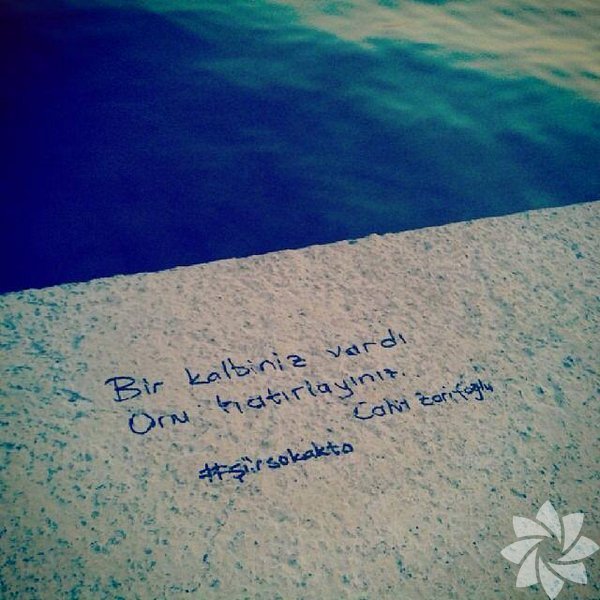 Bir kalbiniz vardı
Onu hatırlayınız..
Cahit Zarifoğlu
#şiirsokakta